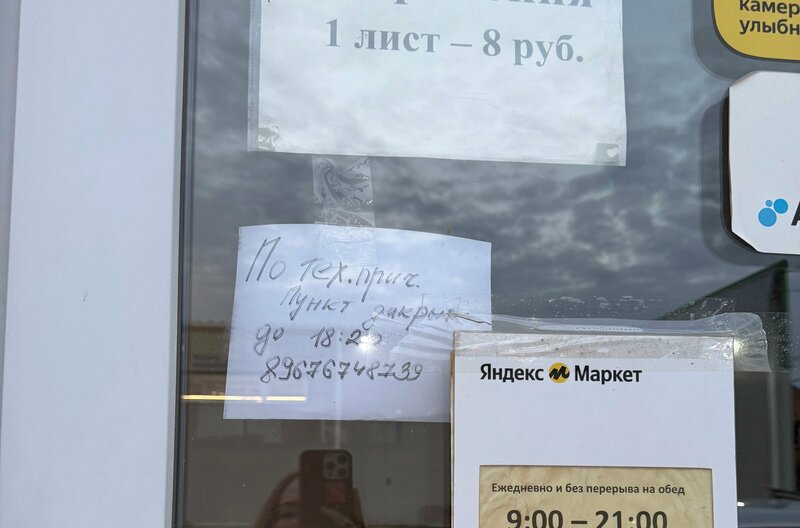 1 лист – 8 руб.
камер
улыбн
По тех.прич.
Пункт закрыт
до 18:20
89676748739
Яндекс Маркет
Ежедневно и без перерыва на обед
9:00 – 21:00